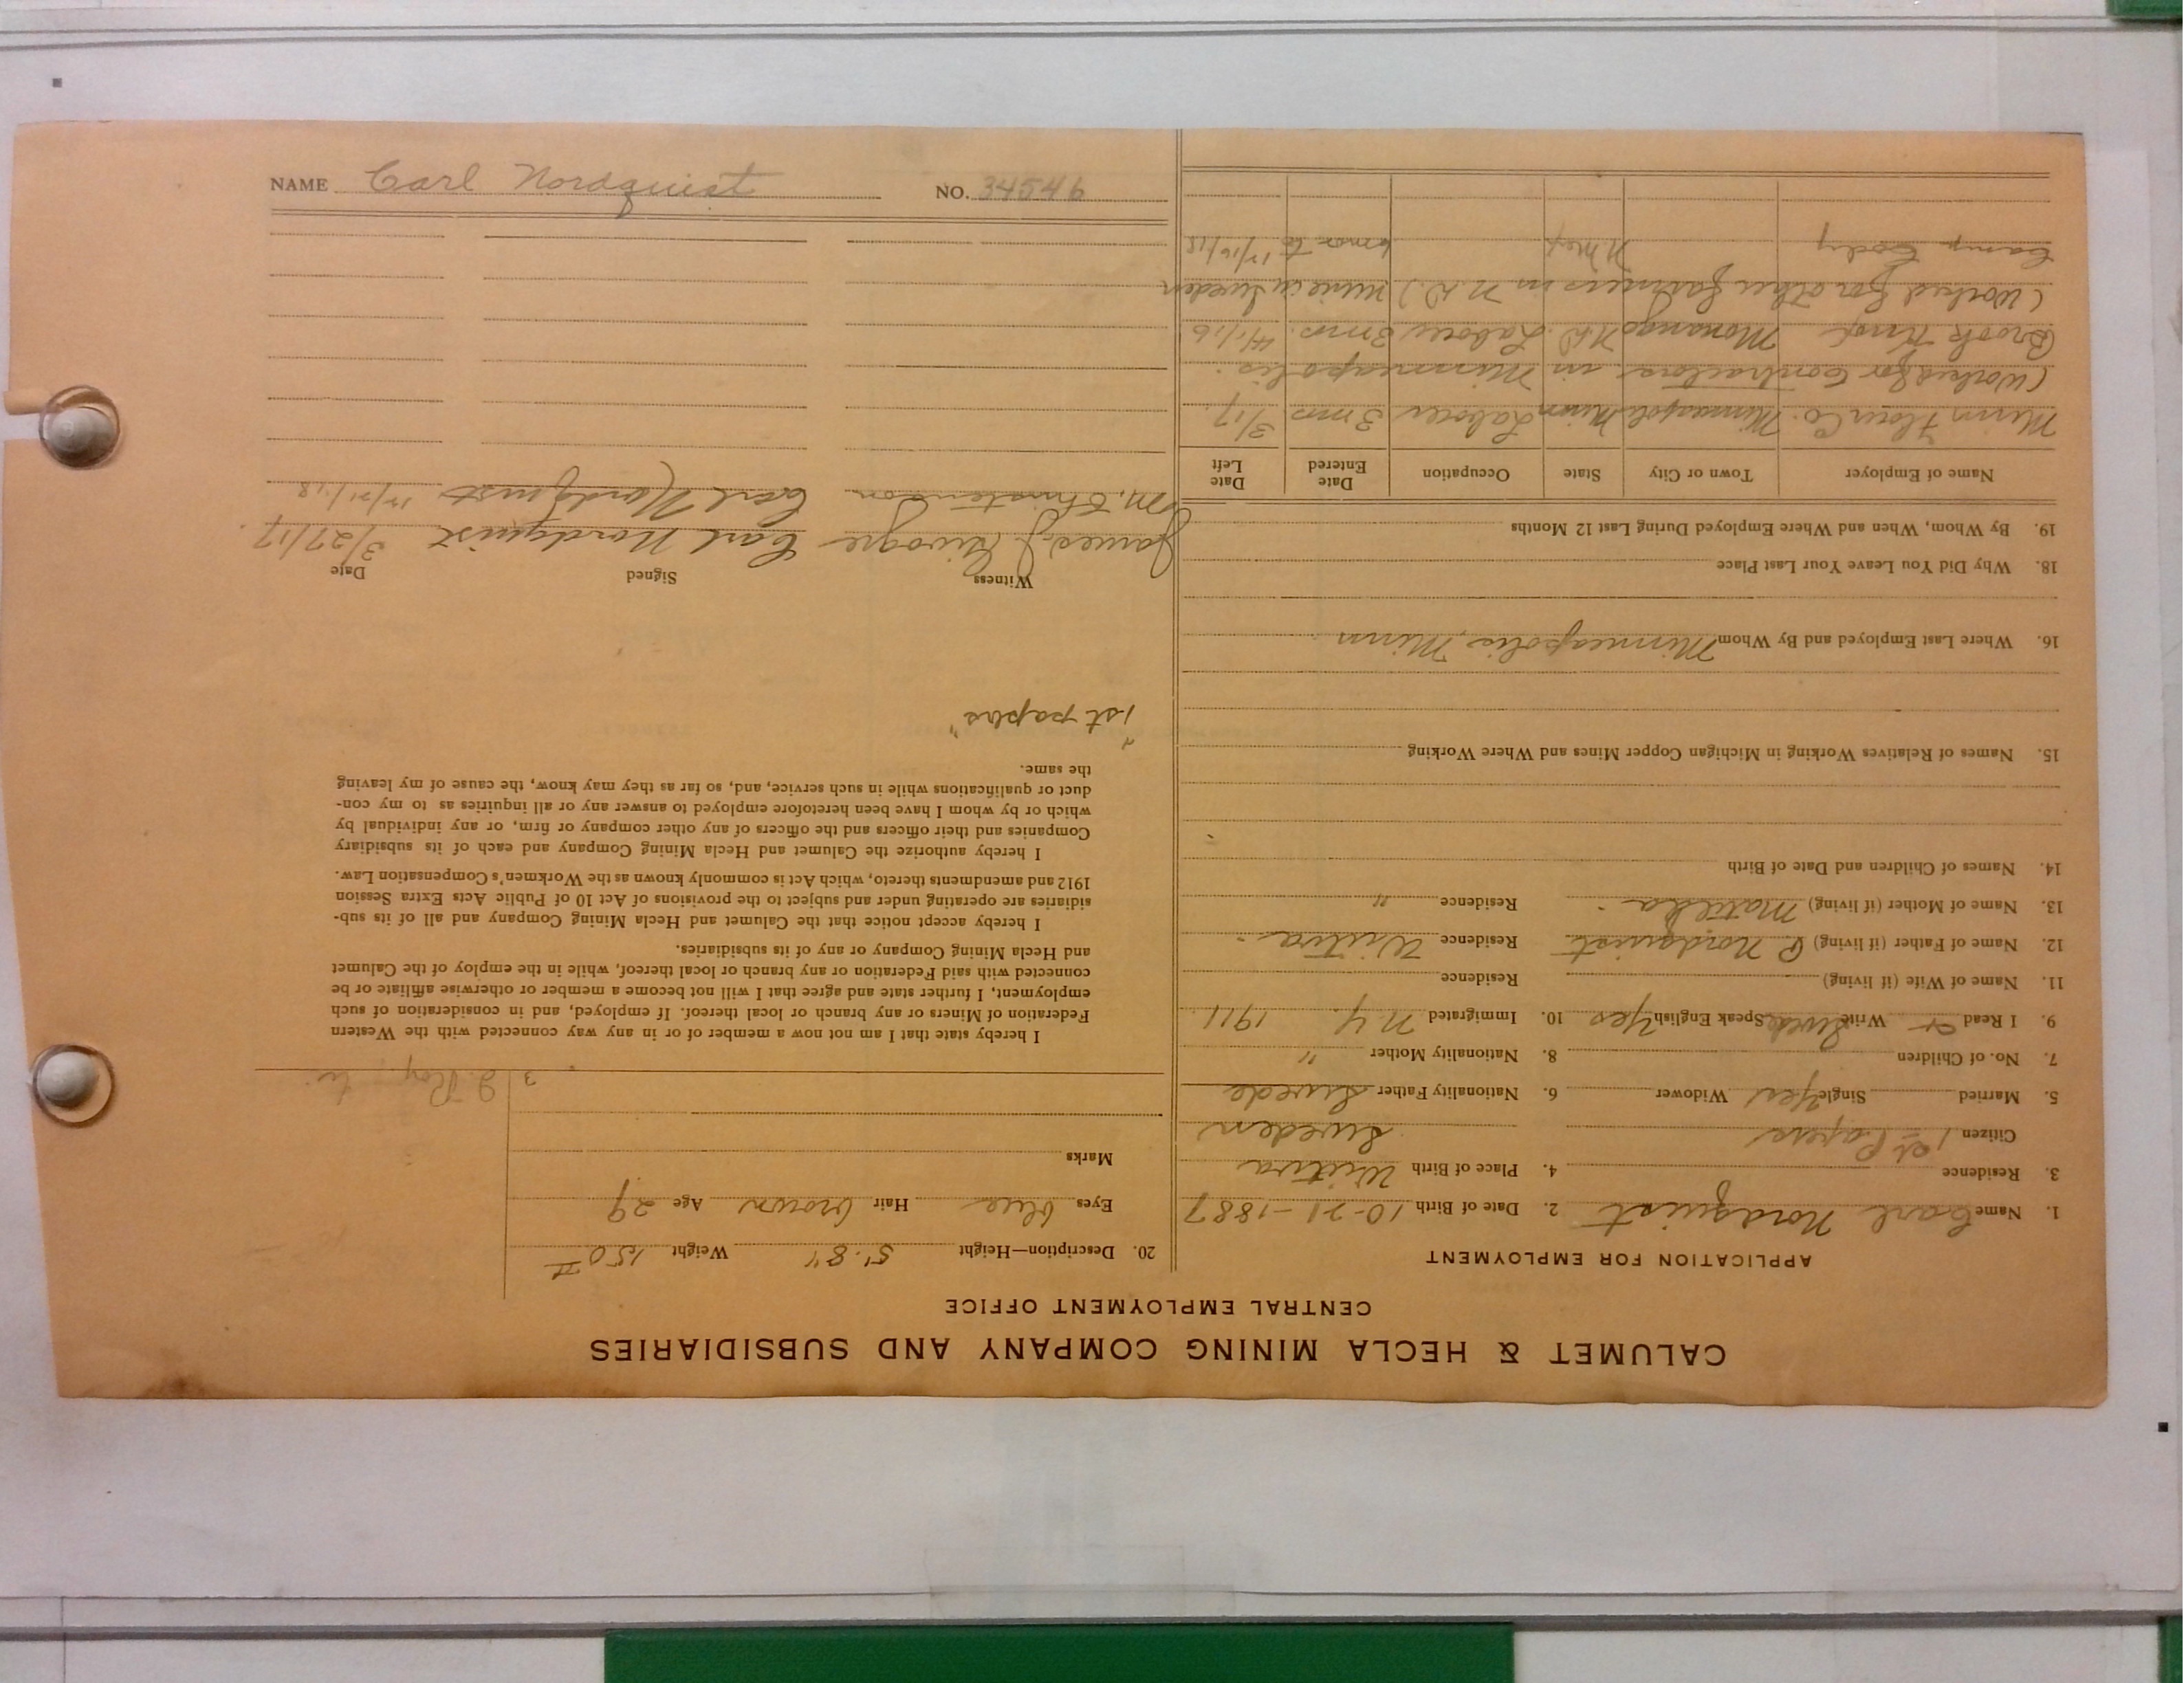 NAME Carl Nordquist NO. 34546
CALUMET & HECLA MINING COMPANY AND SUBSIDIARIES
CENTRAL EMPLOYMENT OFFICE
APPLICATION FOR EMPLOYMENT
1. Name Carl Nordquist 2. Date of Birth 10-21-1887
3. Residence 4. Place of Birth
Citizen 1st Papers Sweden
5. Married Single Yes Widower 6. Nationality Father Swede
7. No. of Children 8. Nationality Mother "
9. I Read & Write Swede Speak English Yes 10. Immigrated N.Y. 1911
11. Name of Wife (if living) Residence
12. Name of Father (if living) P. Nordquist Residence
13. Name of Mother (if living) Matilda Residence "
14. Names of Children and Date of Birth
15. Names of Relatives Working in Michigan Copper Mines and Where Working
16. Where Last Employed and By Whom Minneapolis, Minn
18. Why Did You Leave Your Last Place
19. By Whom, When and Where Employed During Last 12 Months
Name of Employer Town or City State Occupation Date Entered Date Left
Minn Flour Co. Minneapolis Minn Laborer 3 mos 3/17
(Worked for Contractors in Minneapolis.
Monango N.D. Laborer 3 mos. 4/1/16
(Worked for other farmers in N.D.) Mine in Sweden
Camp Cody N. Mex 6 mos to 12/16/18
20. Description—Height 5'.8" Weight 150#
Eyes blue Hair brown Age 29
Marks
I hereby state that I am not now a member of or in any way connected with the Western
Federation of Miners or any branch or local thereof. If employed, and in consideration of such
employment, I further state and agree that I will not become a member or otherwise affiliate or be
connected with said Federation or any branch or local thereof, while in the employ of the Calumet
and Hecla Mining Company or any of its subsidiaries.
I hereby accept notice that the Calumet and Hecla Mining Company and all of its sub-
sidiaries are operating under and subject to the provisions of Act 10 of Public Acts Extra Session
1912 and amendments thereto, which Act is commonly known as the Workmen's Compensation Law.
I hereby authorize the Calumet and Hecla Mining Company and each of its subsidiary
Companies and their officers and the officers of any other company or firm, or any individual by
which or by whom I have been heretofore employed to answer any or all inquiries as to my con-
duct or qualifications while in such service, and, so far as they may know, the cause of my leaving
the same.
"1st papers"
Witness Signed Date
James J. Carl Nordquist 3/27/17
M. Carl Nordquist 12/21/18